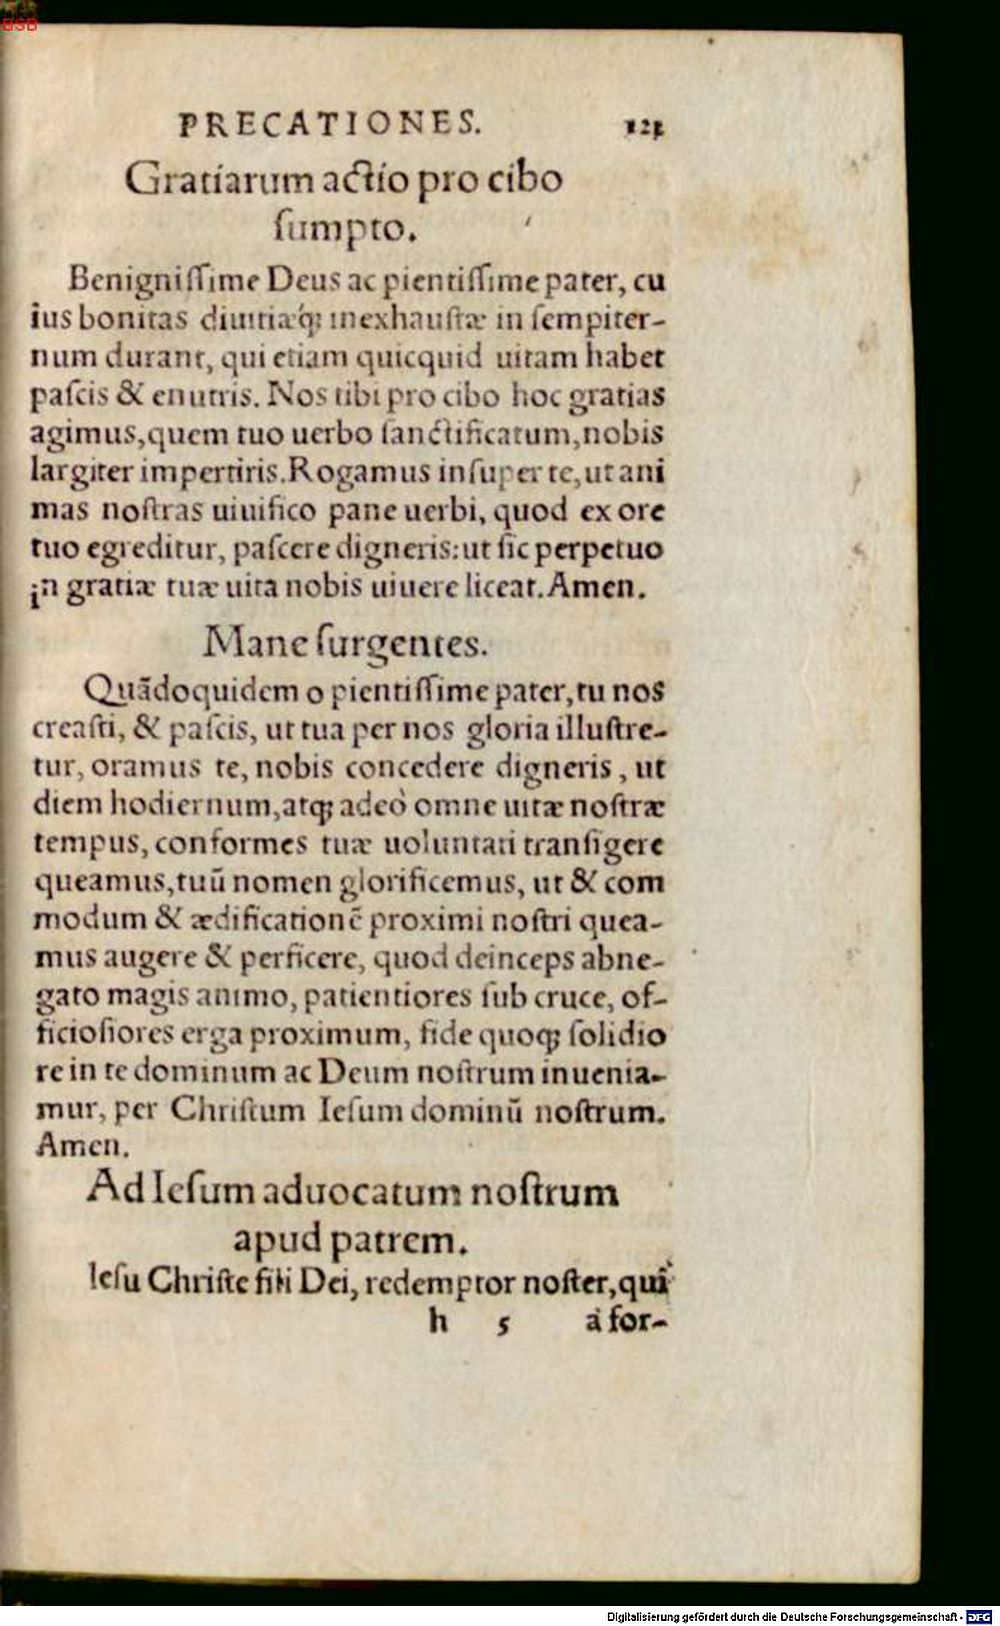 BSB
PRECATIONES. 121
Gratiarum actio pro cibo
ſumpto.
Benigniſſime Deus ac pientiſſime pater, cu
ius bonitas diuitiæq́; inexhauſtæ in ſempiter-
num durant, qui etiam quicquid uitam habet
paſcis & enutris. Nos tibi pro cibo hoc gratias
agimus, quem tuo uerbo ſanctificatum, nobis
largiter impertiris. Rogamus inſuper te, ut ani
mas noſtras uiuifico pane uerbi, quod ex ore
tuo egreditur, paſcere digneris: ut ſic perpetuo
in gratiæ tuæ uita nobis uiuere liceat. Amen.
Mane ſurgentes.
Quãdoquidem o pientiſſime pater, tu nos
creaſti, & paſcis, ut tua per nos gloria illuſtre-
tur, oramus te, nobis concedere digneris, ut
diem hodiernum, atq; adeò omne uitæ noſtræ
tempus, conformes tuæ uoluntati tranſigere
queamus, tuũ nomen glorificemus, ut & com
modum & ædificationẽ proximi noſtri quea-
mus augere & perficere, quod deinceps abne-
gato magis animo, patientiores ſub cruce, of-
ficioſiores erga proximum, fide quoq; ſolidio
re in te dominum ac Deum noſtrum inuenia-
mur, per Chriſtum Ieſum dominũ noſtrum.
Amen.
Ad Ieſum aduocatum noſtrum
apud patrem.
Ieſu Chriſte fili Dei, redemptor noſter, qui
h 5 à for-
Digitalisierung gefördert durch die Deutsche Forschungsgemeinschaft - DFG